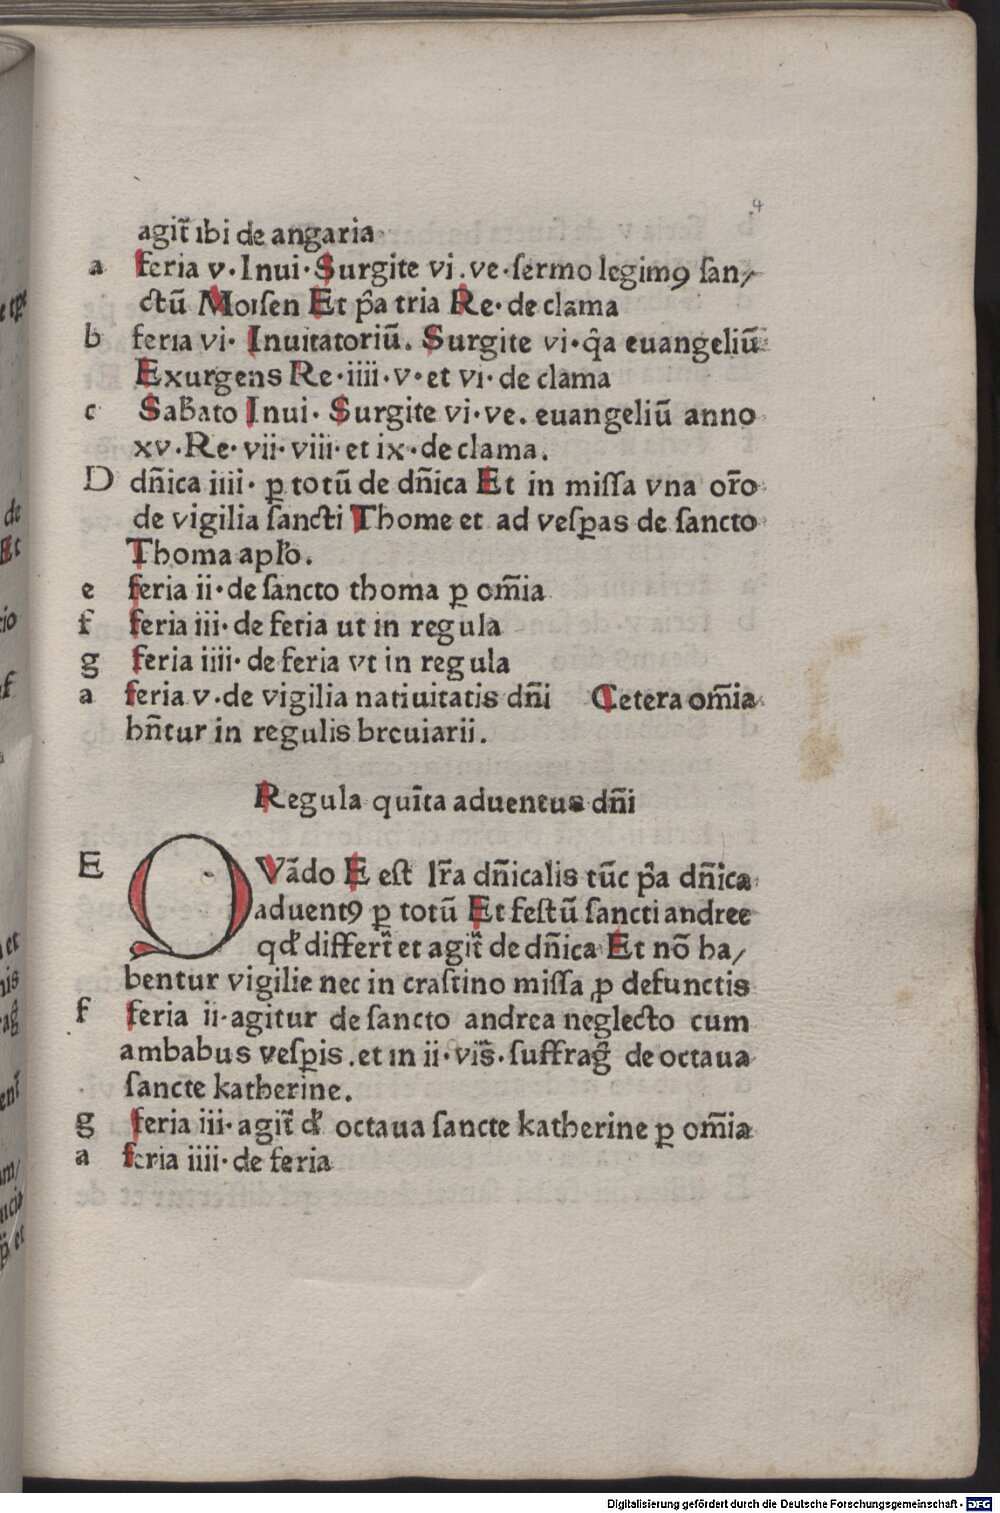 4
agit̃ ibi de angaria
a feria v· Inui· Surgite vi. ve· sermo legimꝰ san/
ctū Moisen Et p̄a tria Re· de clama
b feria vi· Inuitatoriū. Surgite vi· q̄a euangeliū
Exurgens Re· iiii· v· et vi· de clama
c Sabbato Inui· Surgite vi· ve. euangeliū anno
xv· Re· vii· viii· et ix· de clama.
D dn̄ica iiii· ꝑ totū de dn̄ica Et in missa vna or̄o
de vigilia sancti Thome et ad vesꝑas de sancto
Thoma apl̄o.
e feria ii· de sancto thoma ꝑ om̄ia
f feria iii· de feria ut in regula
g feria iiii· de feria vt in regula
a feria v· de vigilia natiuitatis dn̄i Cetera om̄ia
hn̄tur in regulis breuiarii.
Regula quīta aduentus dn̄i
E QVādo E est lr̄a dn̄icalis tūc p̄a dn̄ica
aduentꝰ ꝑ totū Et festū sancti andree
qd̛ differt̃ et agit̃ de dn̄ica Et nō ha/
bentur vigilie nec in crastino missa ꝓ defunctis
f feria ii· agitur de sancto andrea neglecto cum
ambabus vesꝑis. et in ii· vis̄· suffrag̃ de octaua
sancte katherine.
g feria iii· agit̃ d̛ octaua sancte katherine ꝑ om̄ia
a feria iiii· de feria
Digitalisierung gefördert durch die Deutsche Forschungsgemeinschaft - DFG